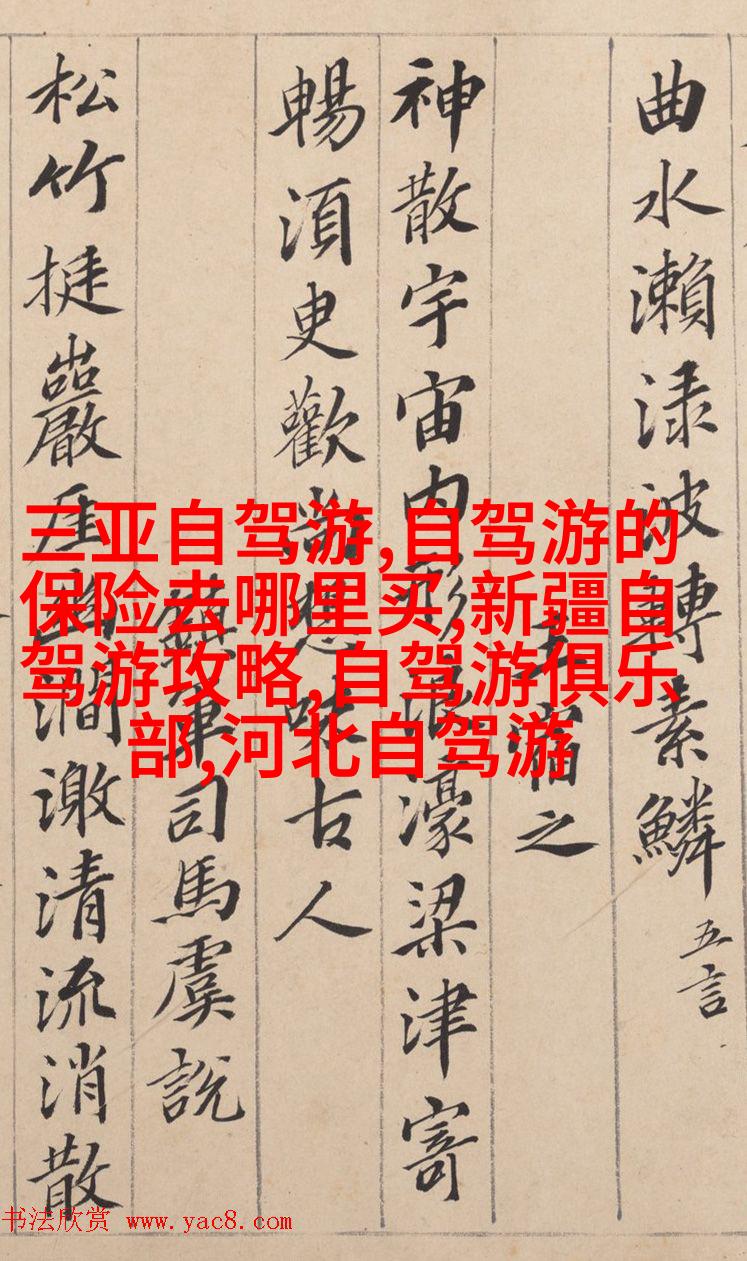 曲水瀨渌波轉素鱗 五言
之
神散宇宙内形浪濠梁津寄
暢湏臾歡尚想味古人
鎮軍司馬虞説
松竹挺巖崖幽澗激清流消散
三亚自驾游,自驾游的
保险去哪里买,新疆自
驾游攻略,自驾游俱乐
部,河北自驾游
书法欣赏 www.yac8.com